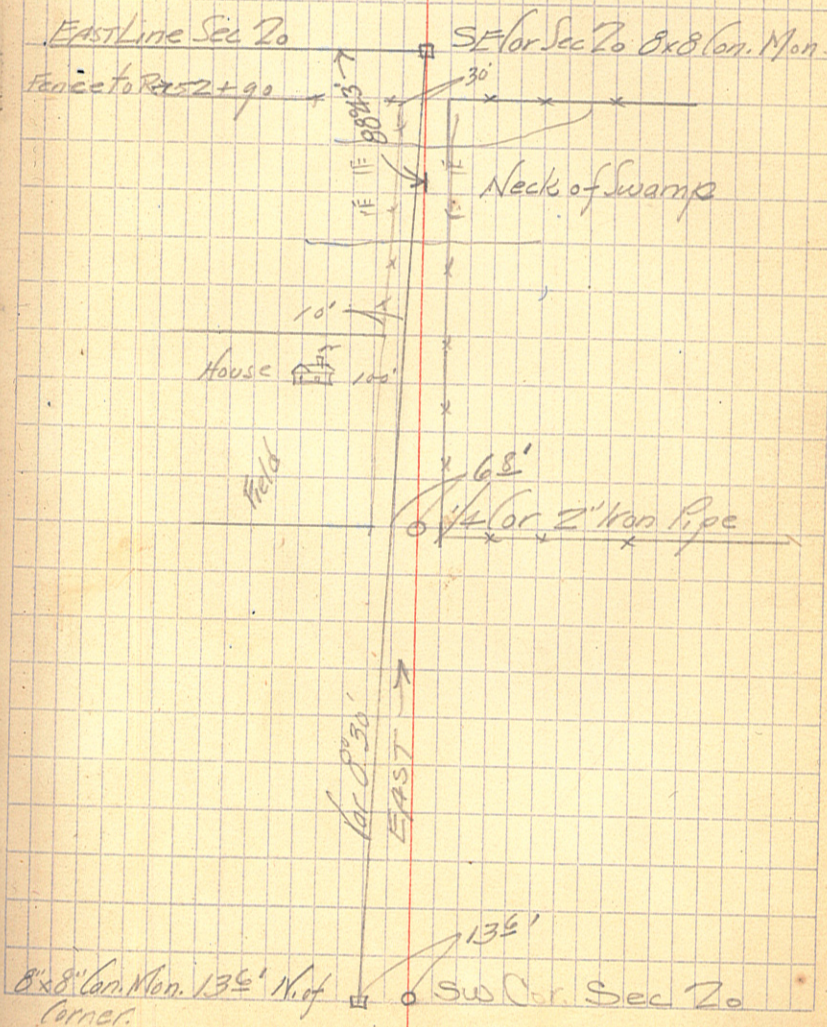 EAST Line Sec 20
SE Cor Sec 20 8x8 Con. Mon.
30'
Fence to R 52+90
Neck of Swamp
10'
House
100'
Field
6 8'
1/4 Cor 2" Iron Pipe
Var 8° 30'
EAST
13 6'
8"x8" Con. Mon. 13 6' N. of
Corner.
SW Cor. Sec 20